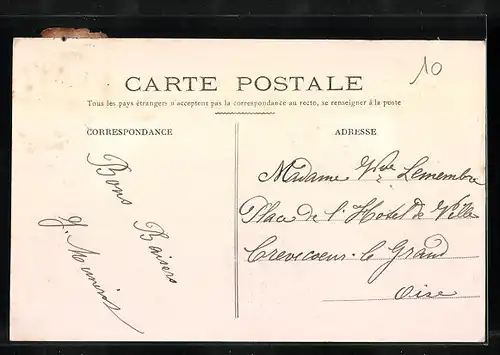 10
CARTE POSTALE
Tous les pays étrangers n'acceptent pas la correspondance au recto, se renseigner à la poste
CORRESPONDANCE
Bons
Baisers
ADRESSE
Madame Vve Lemembre
Place de l'Hotel de Ville
Crevecoeur-le Grand
Oise